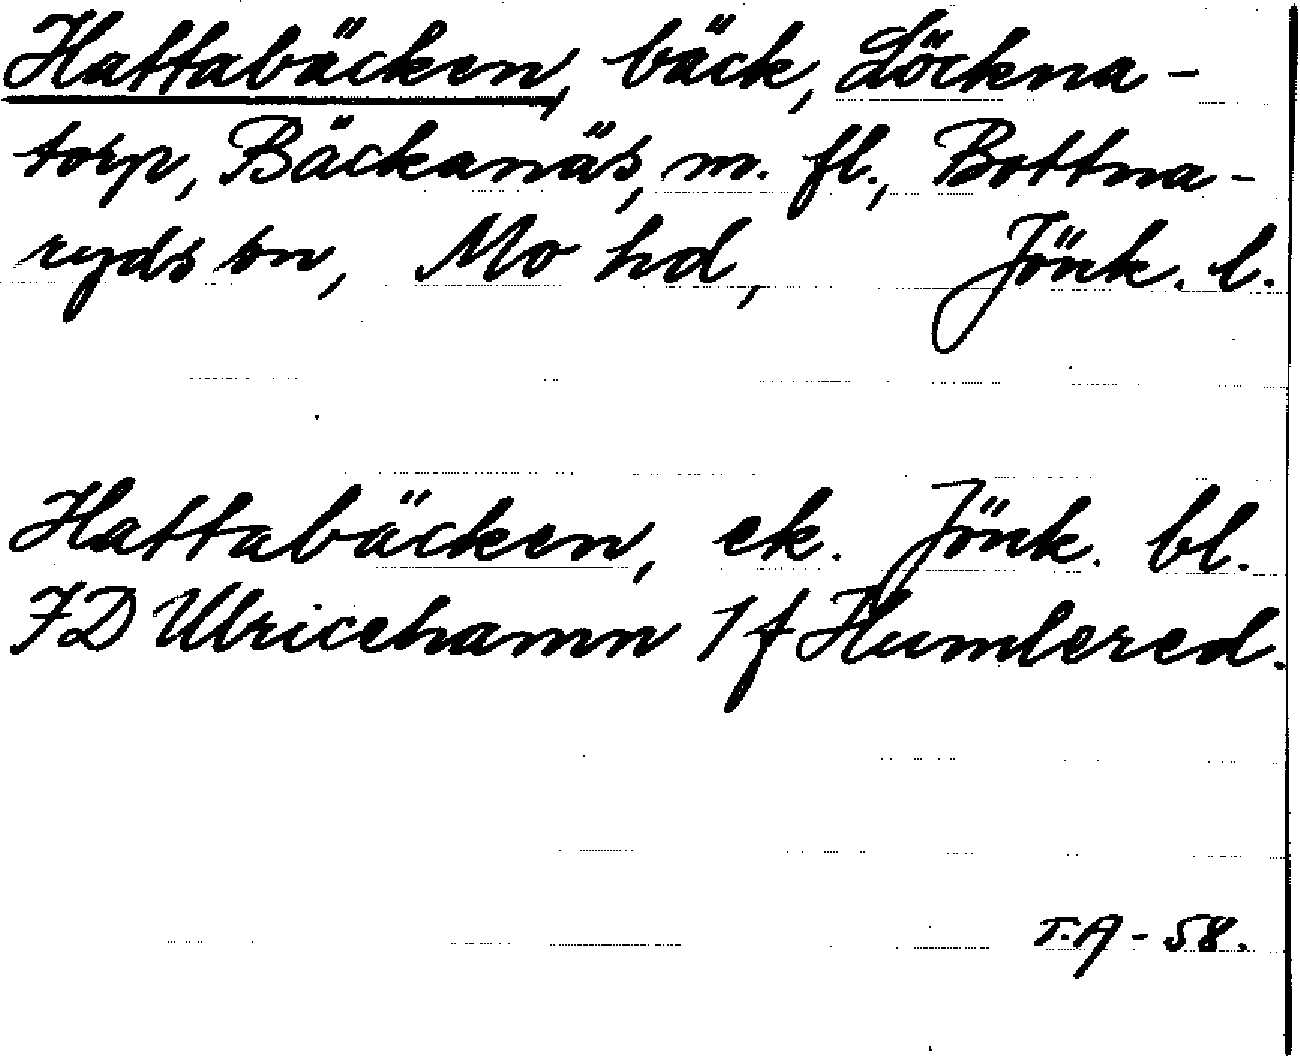 Hattabäcken, bäck, Löckna-
torp, Bäckanäs, m. fl., Bottna-
ryds sn, Mo hd, Jönk. l.
Hattabäcken, ek. Jönk. bl.
7D Ulricehamn 1f Humlered.
T.A - 58.